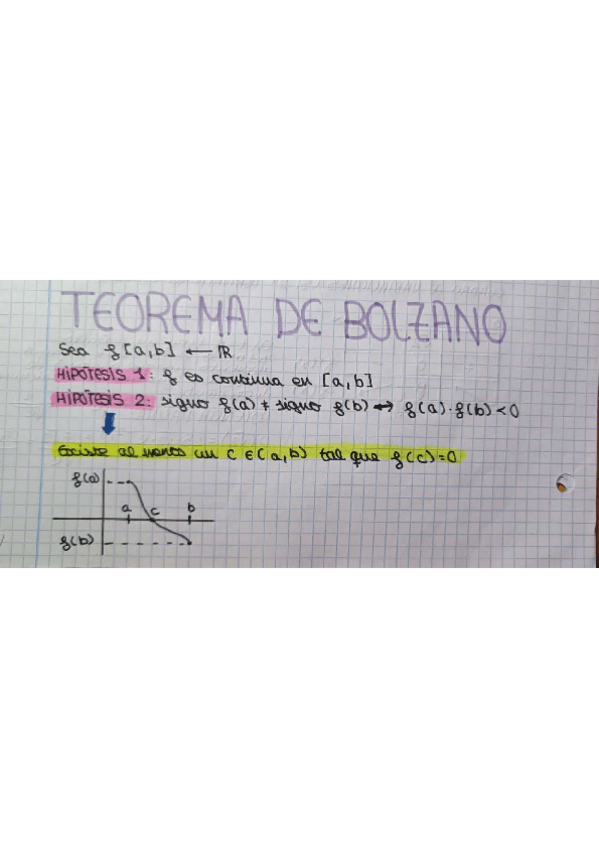 TEOREMA DE BOLZANO
Sea f[a,b] ← ℝ
HIPÓTESIS 1: f es continua en [a,b]
HIPÓTESIS 2: signo f(a) ≠ signo f(b) ↔ f(a)·f(b)<0
Existe al menos un c ∈(a,b) tal que f(c)=0
f(a)
a c b
f(b)